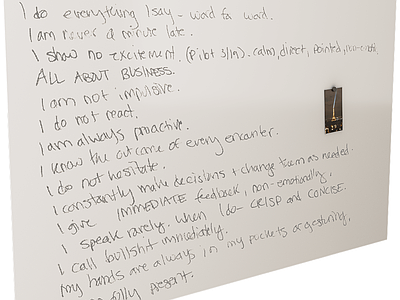 I do everything I say - word for word.
I am never a minute late.
I show no excitement. (Pilot S/In). calm, direct, pointed, non-emoti
ALL ABOUT BUSINESS.
I am not impulsive.
I do not react.
I am always proactive.
I know the outcome of every encounter.
I do not hesitate.
I constantly make decisions + change them as needed.
I give IMMEDIATE feedback, non-emotionally,
I speak rarely. When I do - CRISP and CONCISE.
I call bullshit immediately.
My hands are always in my pockets or gesturing,
fully present.